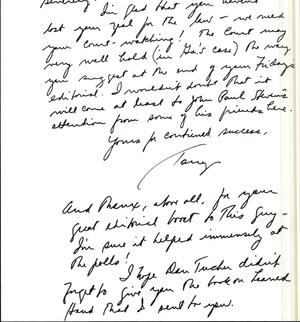 I'm glad that you haven't
lost your zeal for the law — we need
your Court-watching! The Court may
very well hold (in Ga's case) the way
you suggest at the end of your Friday's
editorial. I wouldn't doubt that it
will come at least to John Paul Stevens's
attention from some of his friends here.
Yours for continued success,
Tony
And thanx, above all, for your
great editorial boost to this guy —
I'm sure it helped immensely at
the polls!
I hope Dan Tucker didn't
forget to give you the book on Learned
Hand that I sent to you.